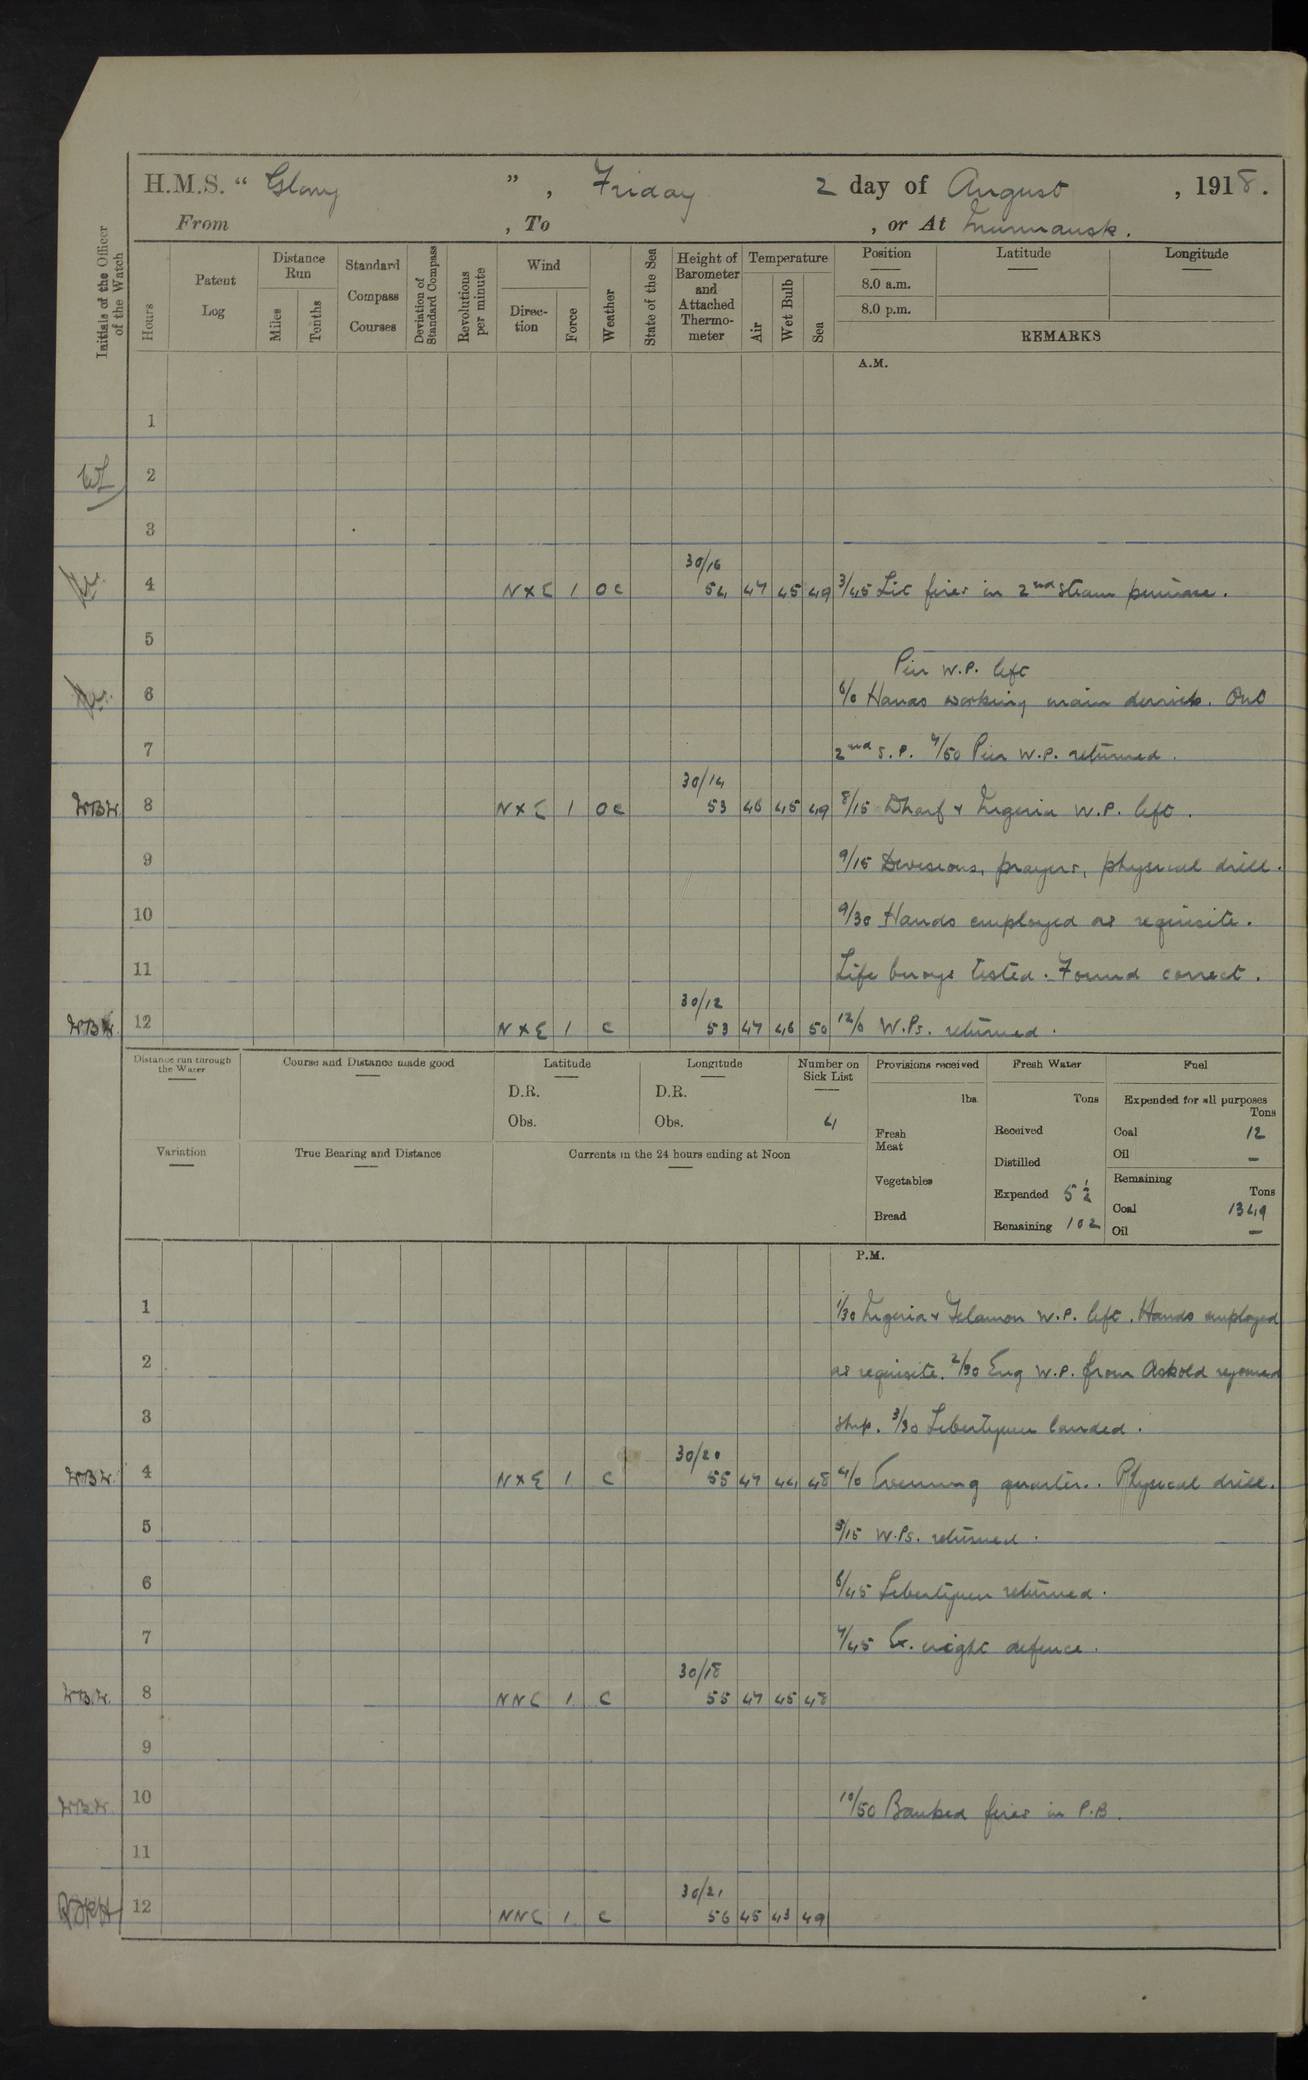 H.M.S. “ Glory ” , Friday 2 day of August , 1918.
From , To , or At Murmansk.
Initials of the Officer of the Watch
Hours
Patent Log
Distance Run
Miles
Tenths
Standard Compass Courses
Deviation of Standard Compass
Revolutions per minute
Wind
Direction
Force
Weather
State of the Sea
Height of Barometer and Attached Thermometer
Temperature
Air
Wet Bulb
Sea
Position
8.0 a.m.
8.0 p.m.
Latitude
Longitude
REMARKS
A.M.
1
2
3
30/16
4 N x E 1 OC 54 47 45 49 3/45 Lit fires in 2nd steam pinnace.
5
Pier W.P. left
6 6/0 Hands working main derrick. Out
7 2nd S.P. 7/50 Pier W.P. returned.
30/14
WBW. 8 N x E 1 OC 53 46 45 49 8/15 Wharf & Nigeria W.P. left.
9 9/15 Divisions, prayers, physical drill.
10 9/30 Hands employed as requisite.
11 Life buoys tested. Found correct.
30/12
WBW. 12 N x E 1 C 53 47 46 50 12/0 W.Ps. returned.
Distance run through the Water
Course and Distance made good
Latitude
D.R.
Obs.
Longitude
D.R.
Obs.
Number on Sick List
4
Provisions received
lbs
Fresh Meat
Vegetables
Bread
Fresh Water
Tons
Received
Distilled
Expended 5 1/2
Remaining 102
Fuel
Expended for all purposes
Tons
Coal 12
Oil –
Remaining
Tons
Coal 1349
Oil –
Variation
True Bearing and Distance
Currents in the 24 hours ending at Noon
P.M.
1 1/30 Nigeria & Telamon W.P. left. Hands employed
2 as requisite. 2/30 Eng W.P. from Askold rejoined
3 ship. 3/30 Libertymen landed.
30/20
WBW. 4 N x E 1 C 55 47 44 48 4/0 Evening quarters. Physical drill.
5 5/15 W.Ps. returned.
6 6/45 Libertymen returned.
7 7/45 Ex. night defence.
30/18
WBW. 8 NNE 1 C 55 47 45 48
9
WBW. 10 10/50 Banked fires in P.B.
11
30/21
12 NNE 1 C 56 45 43 49